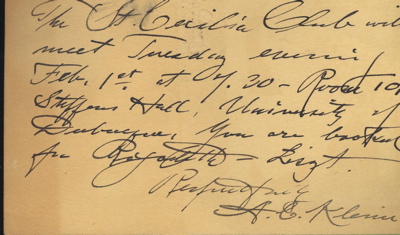 The St Cecilia Club will
meet Tuesday evening
Feb. 1st at 7.30 - Room 10
Steffens Hall, University of
Dubuque, You are booked
for Rigoletto - Liszt.
Respectfully
A. E. Klein